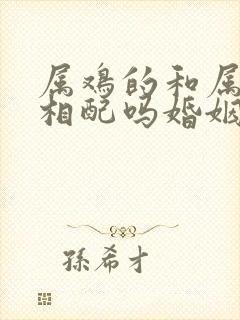 属鸡的和属
相配吗婚姻
孫希才